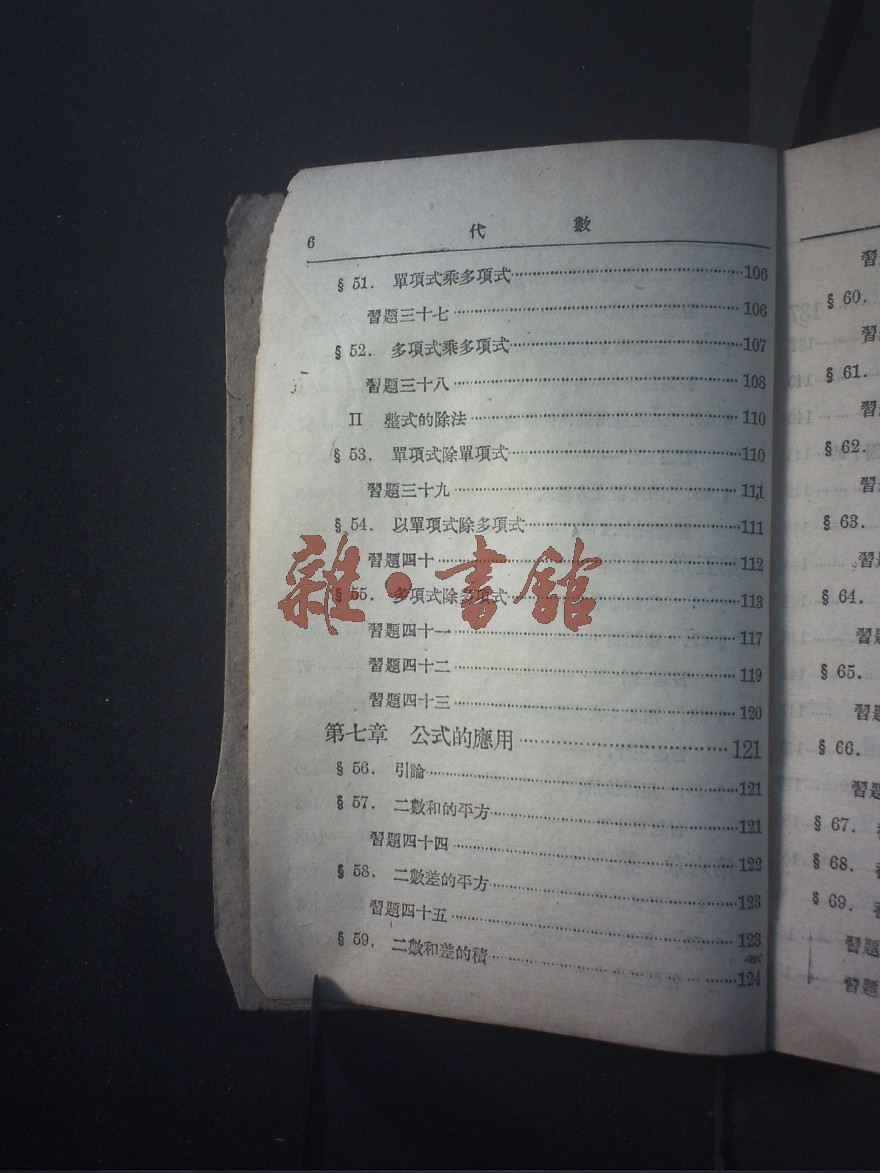 6 代 數
§ 51. 單項式乘多項式 106
習題三十七 106
§ 52. 多項式乘多項式 107
習題三十八 108
II 整式的除法 110
§ 53. 單項式除單項式 110
習題三十九 111
§ 54. 以單項式除多項式 111
習題四十 112
§ 55. 多項式除多項式 113
習題四十一 117
習題四十二 119
習題四十三 120
第七章 公式的應用 121
§ 56. 引論 121
§ 57. 二數和的平方 121
習題四十四 122
§ 58. 二數差的平方 123
習題四十五 123
§ 59. 二數和差的積 124
雜·書館
習
§ 60.
習
§ 61.
習
§ 62.
習
§ 63.
習
§ 64.
習題
§ 65.
習題
§ 66.
習題
§ 67.
§ 68.
§ 69.
習題
習題